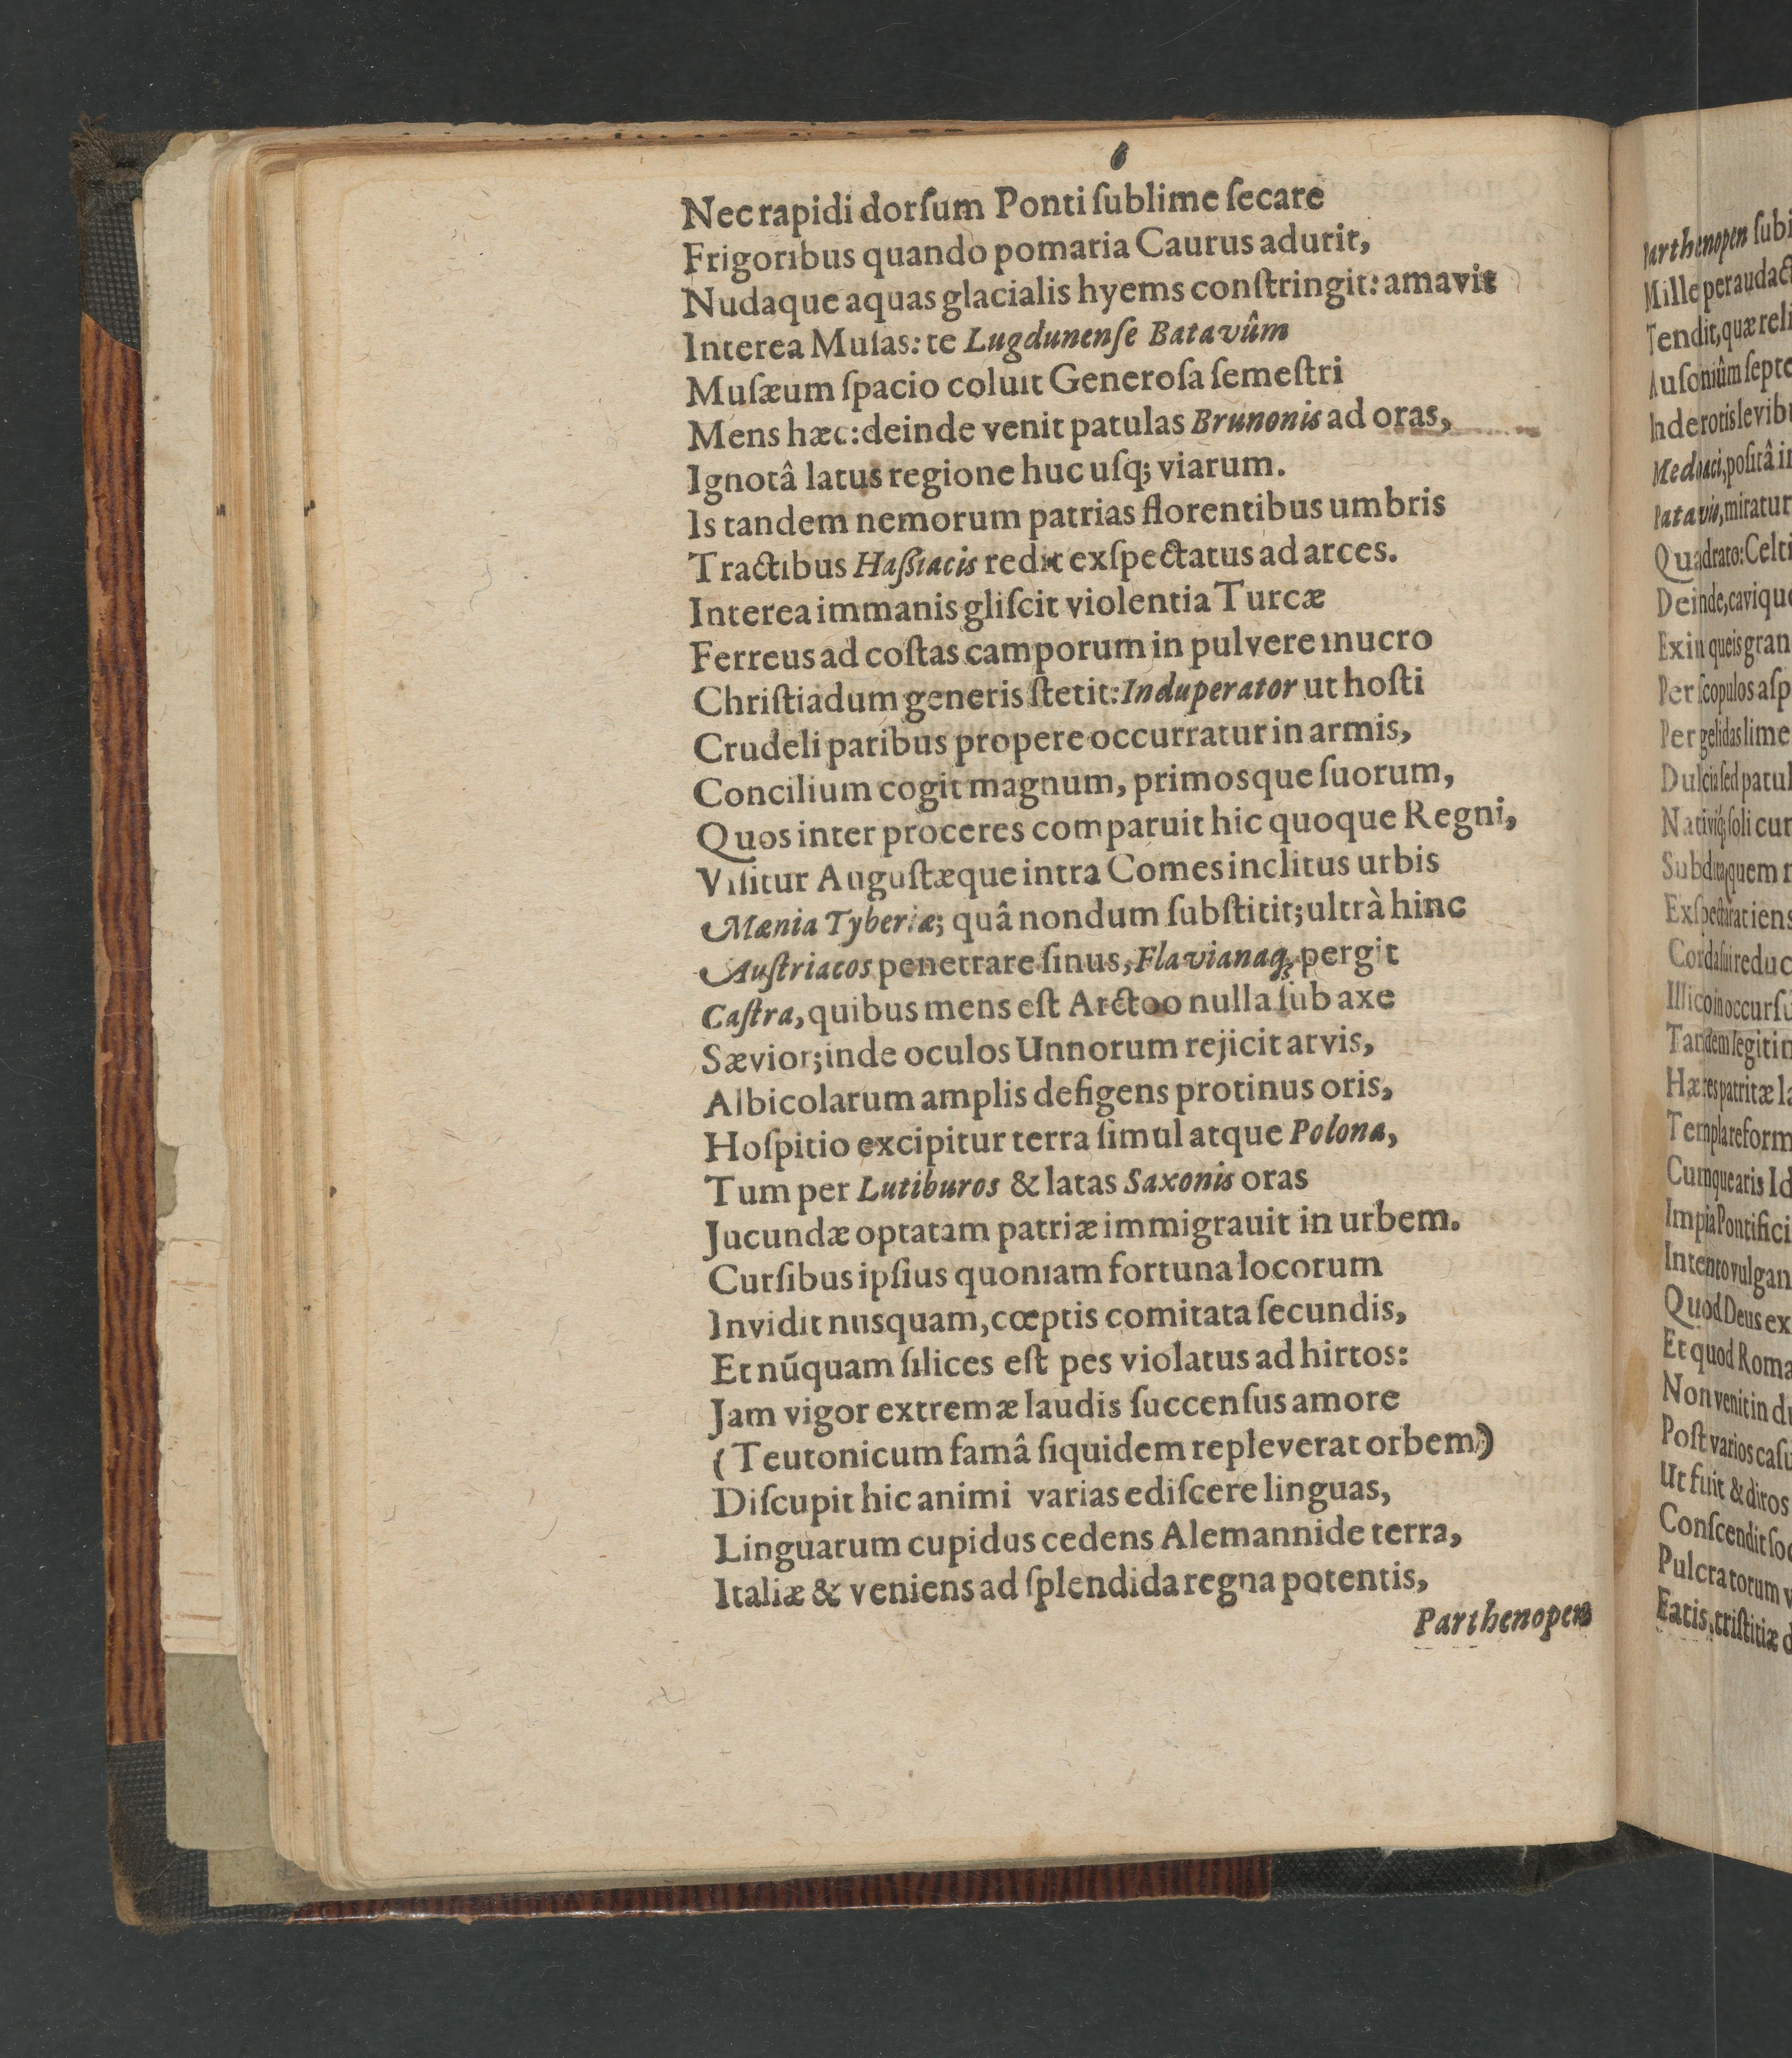 6
Nec rapidi dorſum Ponti ſublime ſecare
Frigoribus quando pomaria Caurus adurit,
Nudaque aquas glacialis hyems conſtringit: amavit
Interea Muſas: te Lugdunenſe Batavûm
Muſæum ſpacio coluit Generoſa ſemeſtri
Mens hæc: deinde venit patulas Brunonis ad oras,
Ignotâ latus regione huc uſq; viarum.
Is tandem nemorum patrias florentibus umbris
Tractibus Haſſiacis redit exſpectatus ad arces.
Interea immanis gliſcit violentia Turcæ
Ferreus ad coſtas camporum in pulvere mucro
Chriſtiadum generis ſtetit: Induperator ut hoſti
Crudeli paribus propere occurratur in armis,
Concilium cogit magnum, primosque ſuorum,
Quos inter proceres comparuit hic quoque Regni,
Viſitur Auguſtæque intra Comes inclitus urbis
Mænia Tyberiæ; quâ nondum ſubſtitit; ultrà hinc
Auſtriacos penetrare ſinus, Flavianaq; pergit
Caſtra, quibus mens eſt Arctoo nulla ſub axe
Sævior; inde oculos Unnorum rejicit arvis,
Albicolarum amplis defigens protinus oris,
Hoſpitio excipitur terra ſimul atque Polona,
Tum per Lutiburos & latas Saxonis oras
Jucundæ optatam patriæ immigrauit in urbem.
Curſibus ipſius quoniam fortuna locorum
Invidit nusquam, cœptis comitata ſecundis,
Et nūquam ſilices eſt pes violatus ad hirtos:
Jam vigor extremæ laudis ſuccenſus amore
(Teutonicum famâ ſiquidem repleverat orbem)
Diſcupit hic animi varias ediſcere linguas,
Linguarum cupidus cedens Alemannide terra,
Italiæ & veniens ad ſplendida regna potentis,
Parthenopen
Parthenopen
Mille per
Tendit, quæ
Inde rotis
Medoaci, poſitâ
Patavii, miratur
Quadrato:
Deinde,
Exin queis
Per ſcopulos
Per gelidas
Dulcia ſed
Nativiq; ſoli
Subdita, quem
Exſpectarat
Corda ſui
Illico in
Tandem
Hæres patritæ
Templa
Cumque aris
Impia
Intento
Quod Deus
Et quod
Non venit in
Poſt varios
Ut fuit & diros
Conſcendit
Pulcra torum
Fatis, triſtitiæ